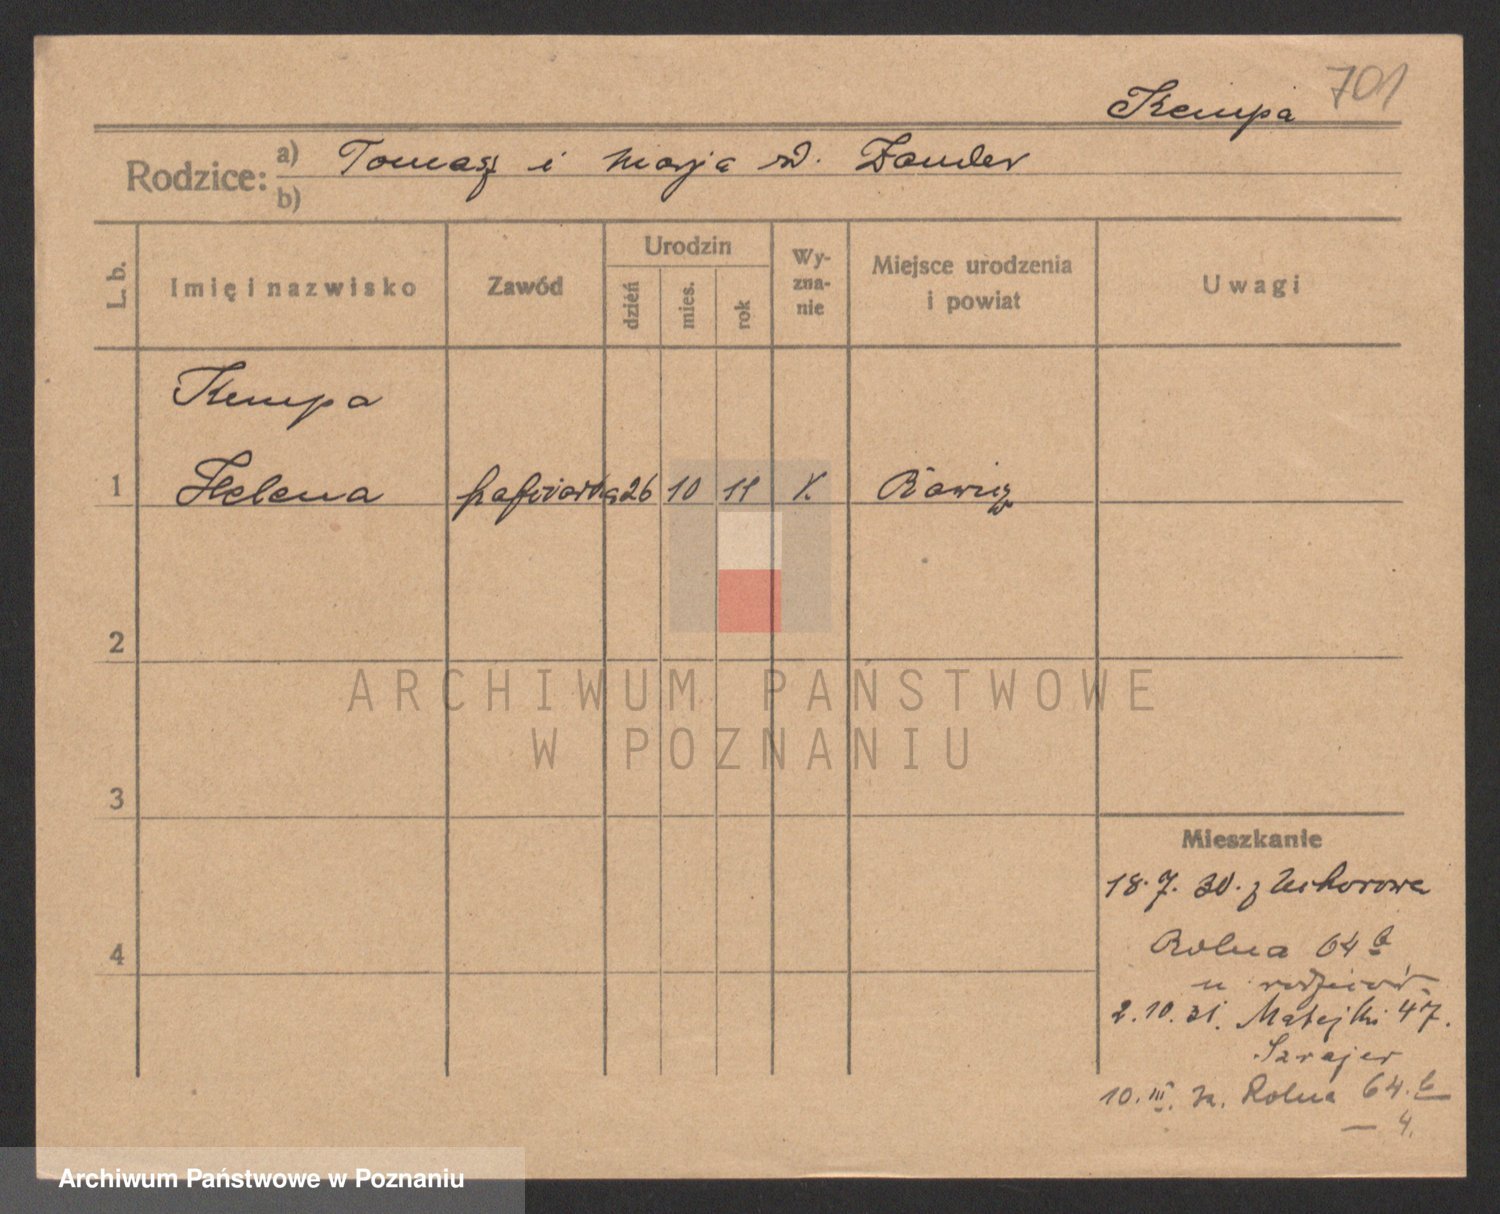 701
Kempa
Rodzice: a) Tomasz i Marja zd. Zander
b)
L. b. Imię i nazwisko Zawód Urodzin dzień mies. rok Wy-zna-nie Miejsce urodzenia i powiat Uwagi
Kempa
1 Helena hafciarka 26 10 11 K. Rawicz
2
ARCHIWUM PAŃSTWOWE
W POZNANIU
3
Mieszkanie
18. 7. 30. z
4
Rolna 64 b
u rodziców
2. 10. 31. Matejki 47.
10. III. Rolna 64. b
— 4.
Archiwum Państwowe w Poznaniu